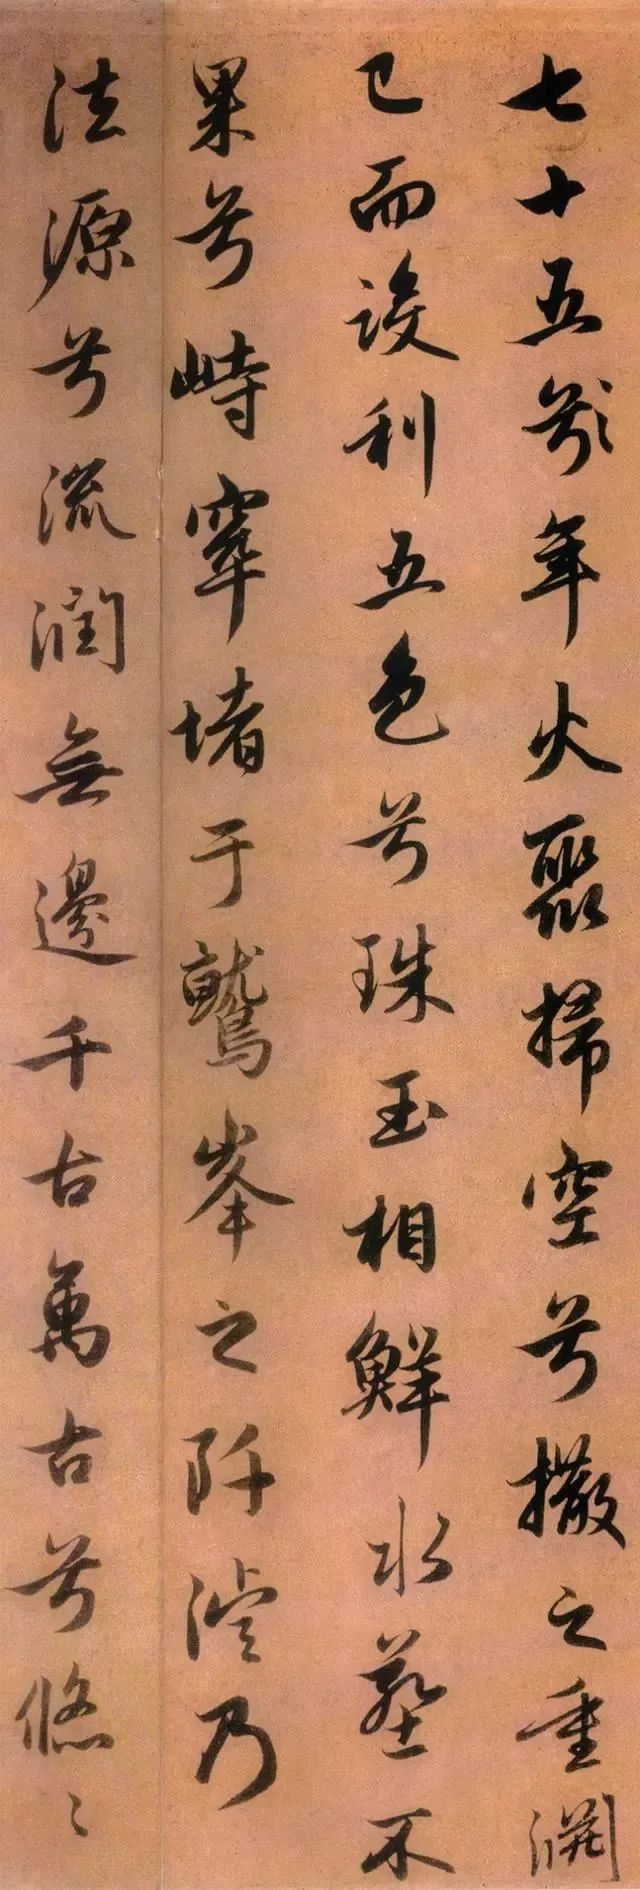 七十五年火聚掃空兮撒之重淵
已而設利五色兮珠玉相鮮水塟不
果兮峙窣堵于鷲峯之阡乃
法源兮流潤無邊千古萬古兮悠〻